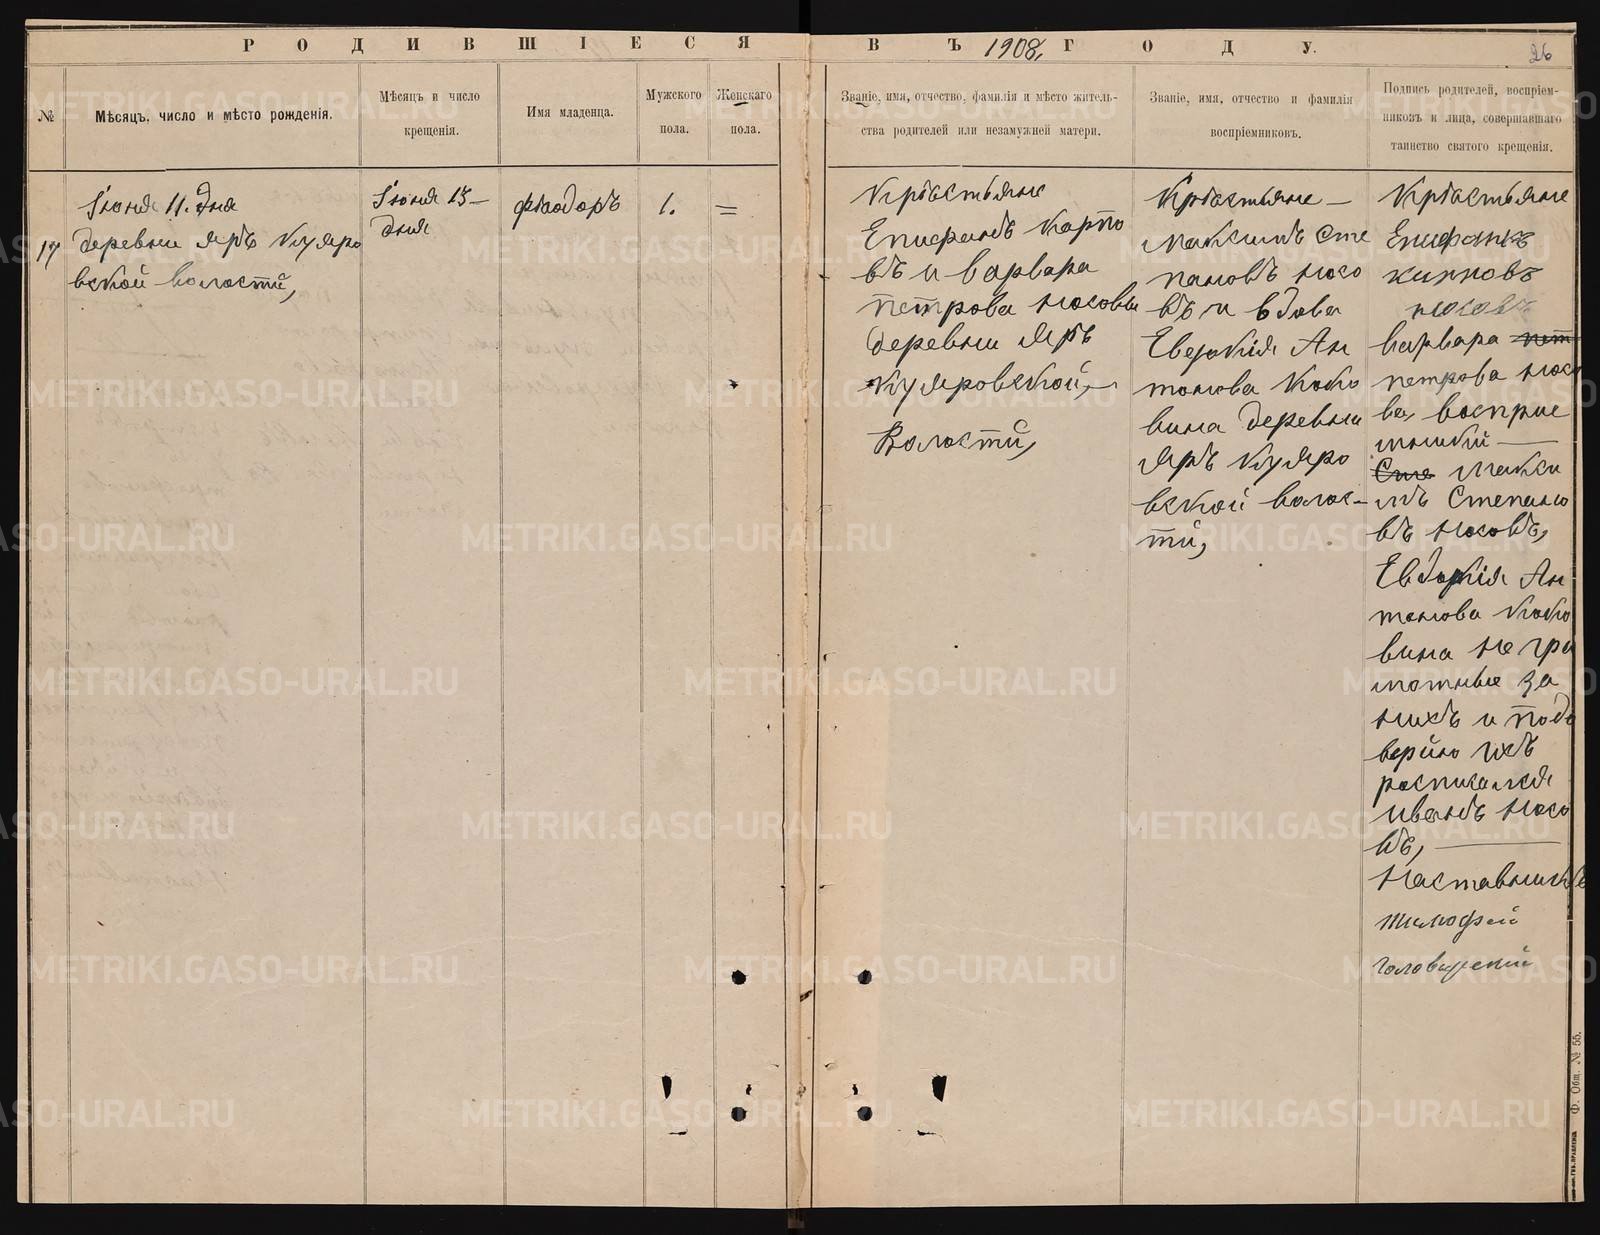 РОДИВШІЕСЯ ВЪ 1908, ГОДУ.
26
№
Мѣсяцъ, число и мѣсто рожденія.
Мѣсяцъ и число
крещенія.
Имя младенца.
Мужского
пола.
Женскаго
пола.
Званіе, имя, отчество, фамилія и мѣсто житель-
ства родителей или незамужней матери.
Званіе, имя, отчество и фамилія
воспріемниковъ.
Подпись родителей, воспріем-
никовъ и лица, совершавшаго
таинство святого крещенія.
17
Іюня 11. Дня
деревни Яръ Куяро
вской волости,
Іюня 13-
дня
Фѣодоръ
1.
=
Крѣстьяне
Епифанъ Карпо
въ и Варвара
Петрова Носовы
деревни Яръ
Куяровской,
Волости,
Крѣстьяне —
Максимъ Сте
пановъ Носо
въ и вдова
Евдокія Ан
тонова Коко
вина деревни
Яръ Куяро
вской волос-
ти,
Крѣстьяне
Епифанъ
носовъ
Варвара пет
петрова Носо
ва, восприе
мники —
Сте Макси
мъ Степано
въ Носовъ,
Евдокія Ан
тонова Коко
вина не гра
мотные за
нихъ и подо
верию ихъ
росписался
Иванъ Носо
въ,
Наставникъ
Тимофей
METRIKI.GASO-URAL.RU
Ф. Общ. № 55.